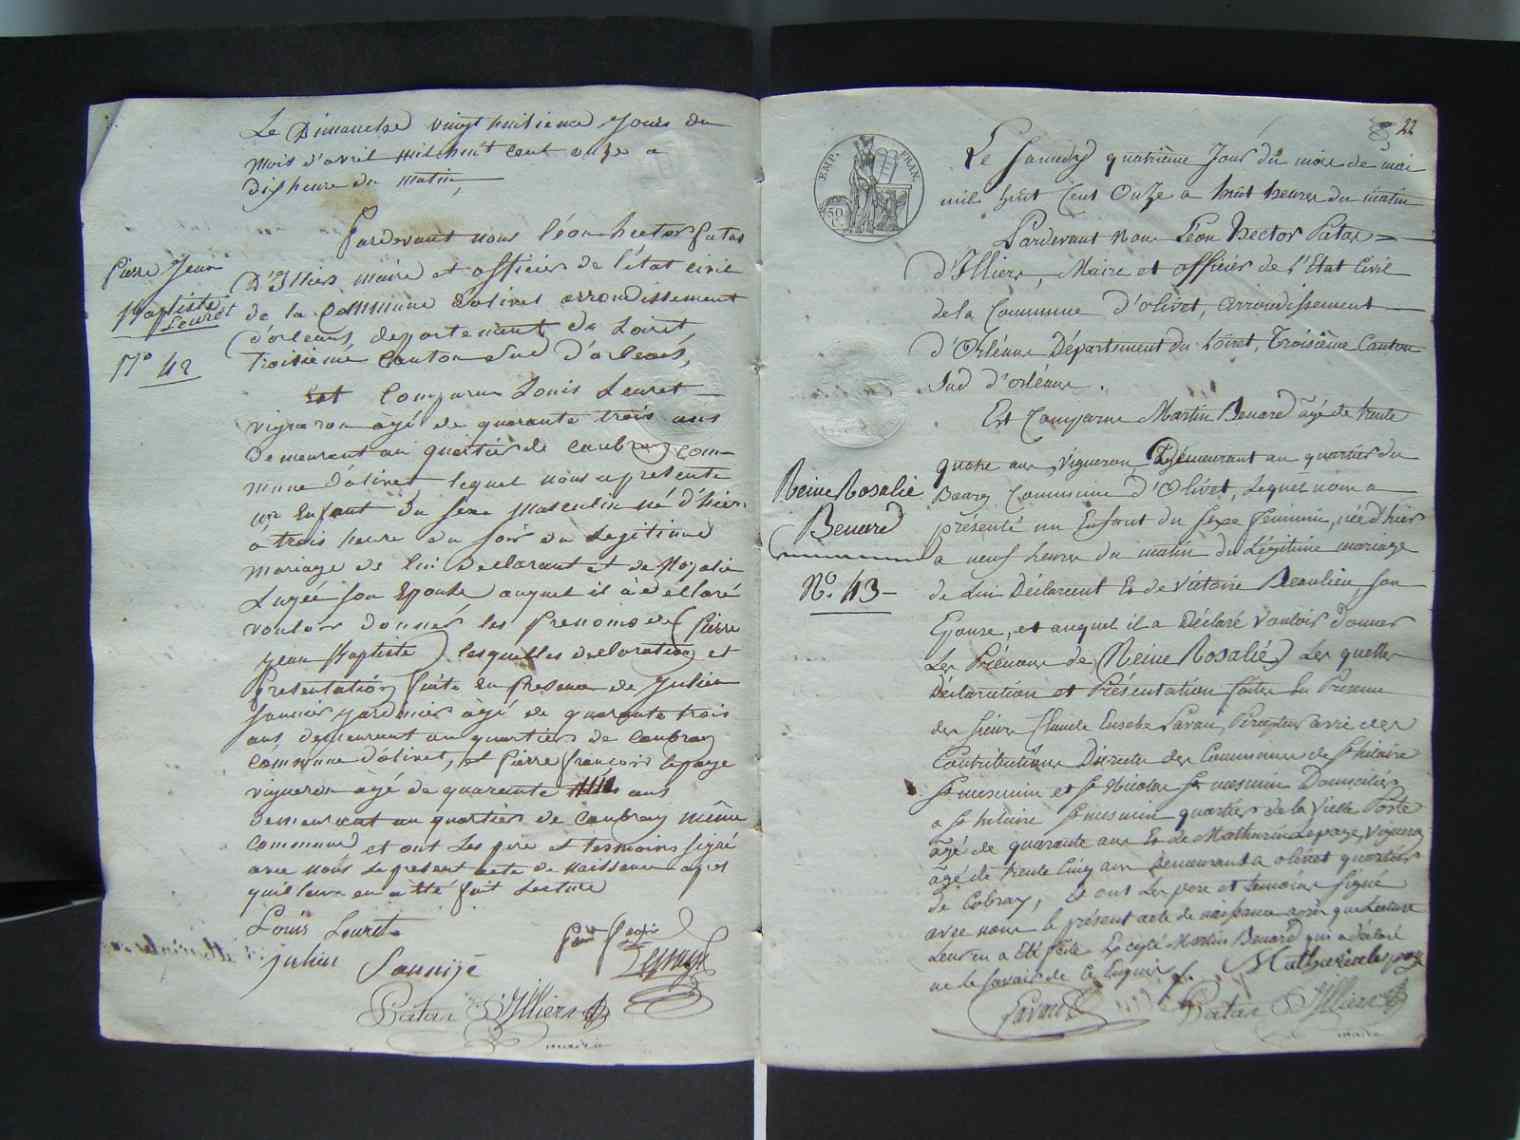 Le Dimanche vingt huitieme Jours du
mois d'avril mil huit cent onze a
dix heure du matin,
Pardevant nous léon hector patas
D'Illiers maire et officier de l'état civil
de la Commune dolivet arrondissement
d'orleans, departement du Loiret,
troisieme Canton sud d'orleans,
Pierre Jean
Baptiste
Louret
N° 42
Est Comparu Louis Louret
vigneron âgé de quarante trois ans
demeurant au quartier de caubray com-
mune dolivet lequel nous a presenté
un Enfant du sexe masculin né d'hier
à trois heure du soir du legitime
mariage de lui declarant et de Rosalie
Lugée son Epouse auquel il à declaré
vouloir donner les prenoms de (Pierre
Jean Baptiste) lesquelles declaration et
Presentation faite en presence de Julien
Saunier jardinier âgé de quarante trois
ans demeurant au quartier de caubray
commune dolivet, et Pierre françois Lepage
vigneron âgé de quarante ans
demeurant au quartier de Caubray même
commune et ont Les pere et temoins signé
avec nous le present acte de naissance apres
quil leur en a été fait Lecture
Louis Louret
julien Saunijé
Lepage
Patas D'Illiers
maire
22
EMP. FRAN.
50 C.
Le Samedy quatrième Jour du mois de mai
mil huit Cent Onze a huit heures du matin
Pardevant Nous Léon Hector Patas
d'Illiers, Maire et officier de l'Etat Civil
de la Commune d'olivet, arrondissement
d'Orléans Département du Loiret, Troisième Canton
Sud d'orléans.
Est Comparu Martin Benard âgé de trente
quatre ans, Vigneron Demeurant au quartier du
Bourg Commune d'Olivet, Lequel nous a
présenté un Enfant du sexe féminin, née d'hier
a neuf heures du matin du Légitime mariage
Reine Rosalie
Benard
N° 43
de Lui Déclarant Et de Victoire Beaulieu, son
Epouse, et auquel il a Déclaré Vouloir donner
Les Prénoms de (Reine Rosalie) Les quelles
Déclaration et Présentation faites En Presence
des sieurs Claude Eusebe Pavau, Percepteur des
Contributions Directes des Communes de St hilaire
St mesmin et St Nicolas St mesmin Domicilié
a St hilaire St mesmin quartier de la Vielle Porte
âgé de quarante ans Et de Mathurin Lepage, Vigneron
âgé de trente Cinq ans Demeurant a olivet quartier
de Cobray, Et ont Les pere et temoins signé
avec nous le présent acte de naissance après que Lecture
Leur en a Eté faite Excepté Martin Benard qui a déclaré
ne le savoir de Ce Enquis
Mathurin Lepage
Patas D'Illiers
maire